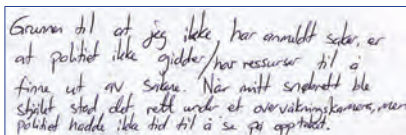 Grunnen til at jeg ikke har anmeldt saker, er
at politiet ikke gidder/har ressurser til å
finne ut av sakene. Når mitt snøbrett ble
stjålet stod det rett under et overvåkningskamera, men
politiet hadde ikke tid til å se på opptaket.